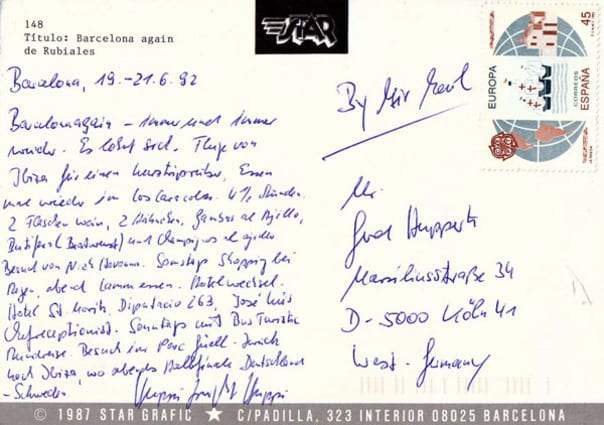 148
Título: Barcelona again
de Rubiales
STAR
Barcelona, 19.-21.6.92
Barcelona again - immer und immer
wieder. Es lohnt sich. Flug von
Ibiza für einen Essen
mal wieder im los Caracoles. 4½ Stunden.
2 Flaschen Wein, 2 Gambas al Ajillo,
Butifara (Bratwurst) und Champignos al ajillo
Besuch von Samstags Shopping bei
Regen, abend Lamm essen. Hotelwechsel.
Hotel St. Moritz, Diputacio 263, José Luis
Chefreceptionist. Sonntags mit Bus Turistic
Rundreise. Besuch im Parc Güell. Zurück
nach Ibiza, wo abends Halbfinale Deutschland
- Schweden
By Air Mail
Mr.
Marsiliusstraße 34
D-5000 Köln 41
West-Germany
EUROPA
CORREOS
ESPAÑA
45
© 1987 STAR GRAFIC ★ C/PADILLA, 323 INTERIOR 08025 BARCELONA